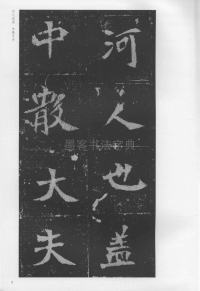 河人也蓋
中散大夫
墨客书法字典